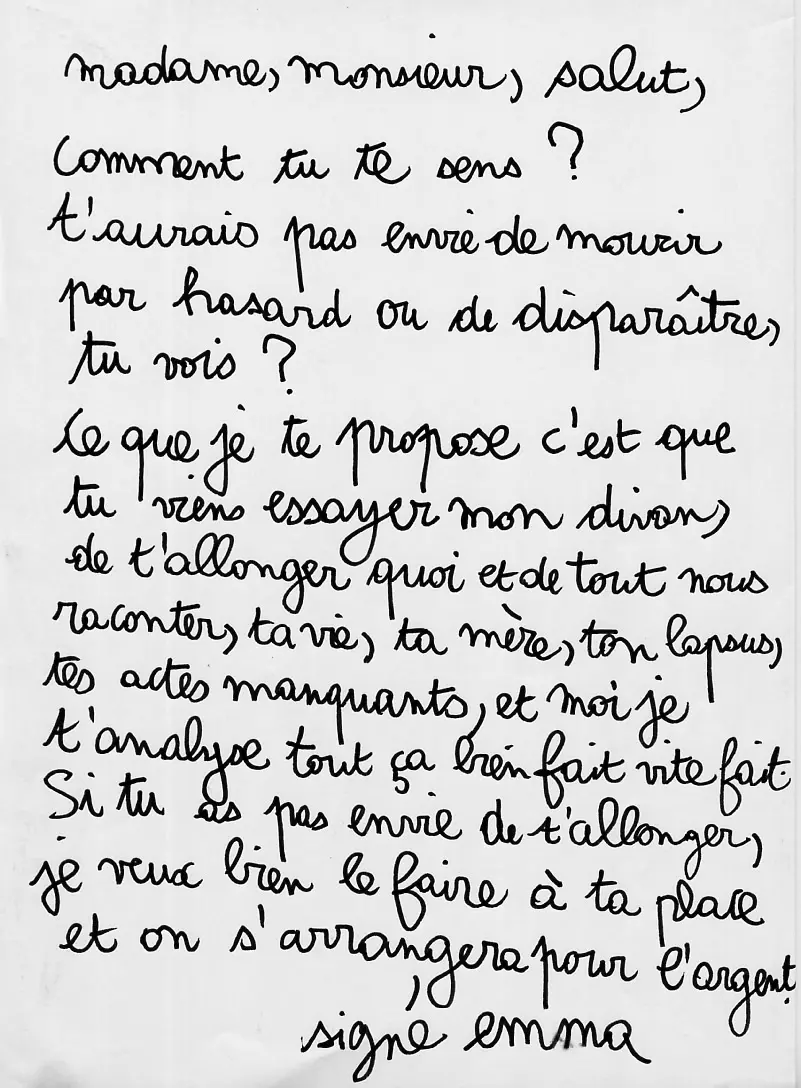 madame, monsieur, salut,
Comment tu te sens ?
t'aurais pas envie de mourir
par hasard ou de disparaître,
tu vois ?
Ce que je te propose c'est que
tu viens essayer mon divan,
de t'allonger quoi et de tout nous
raconter, ta vie, ta mère, ton lapsus,
tes actes manquants, et moi je
t'analyse tout ça bien fait vite fait.
Si tu as pas envie de t'allonger,
je veux bien le faire à ta place
et on s'arrangera pour l'argent.
signé emma